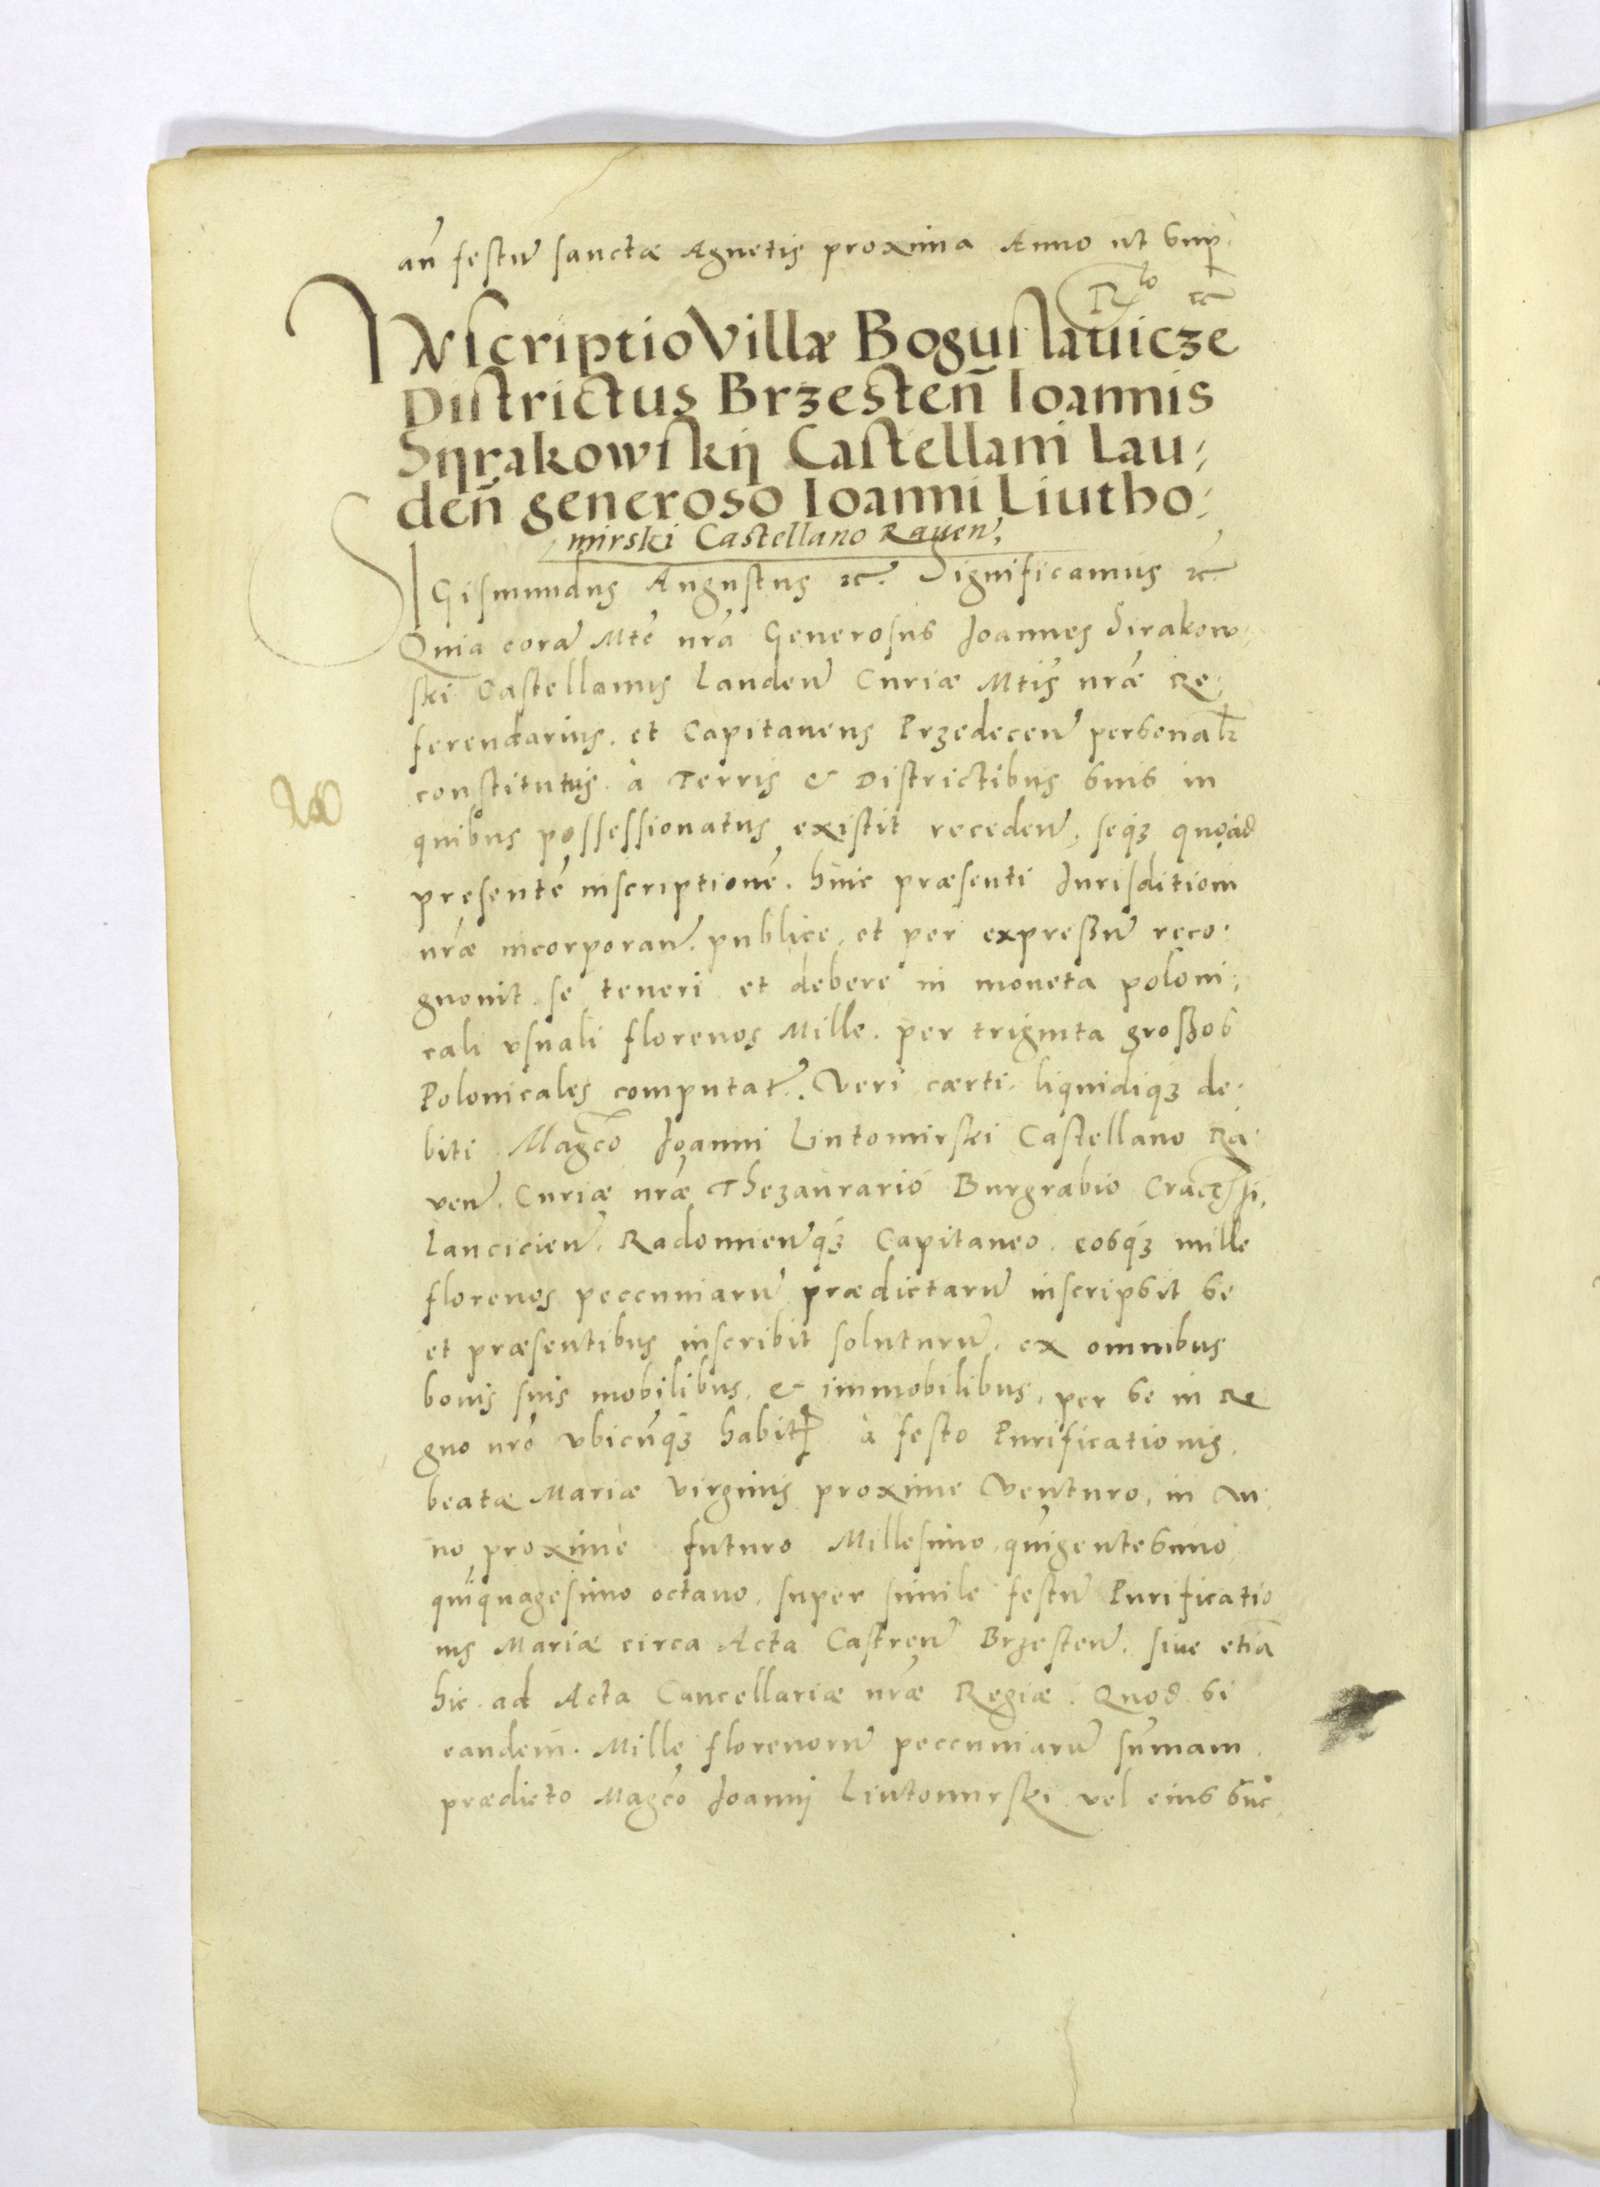 an̄ festū sanctæ Agnetis proxima Anno ut sup.
Rto etc
INscriptio Villæ Boguslavicze
Districtus Brzesteñ Ioannis
Syrakowskij Castellani Lau-
deñ generoso Ioanni Liutho-
mirski Castellano Raveñ,
SIGismundus Augustus etc. Significamus etc
Quia corā Mte nrā Generosus Joannes Sirakow-
ski Castellanus Landeñ Curiæ Mtis nræ Re-
ferendarius. et Capitaneus Przedeceñ personalr
constitutus. à Terris & Districtibus suis in
quibus possessionatus existit recedeñ, seq3 quoad
presentē inscriptionē. huic præsenti Jurisditioni
nræ incorporañ. publice, et per expreßū reco-
gnovit se teneri et debere in moneta poloni-
cali usuali florenos Mille. per triginta großos
Polonicales computat. Veri cærti. liquidiq3 de-
biti Magco Joanni Liutomirski Castellano Ra-
veñ. Curiæ nræ Thezaurario Burgrabio Craccsi,
Lancicieñ. Radomieñq3 Capitaneo. eosq3 mille
florenos peccuniarū prædictarū inscripsit se
et præsentibus inscribit soluturū. ex omnibus
bonis suis mobilibus, & immobilibus, per se in Re
gno nro ubicunq3 habit à festo Purificationis
beatæ Mariæ Virginis proxime Venturo, in An-
no proxime futuro Millesimo, quigentesimo
quīquagesimo octavo. super simile festū Purificatio
nis Mariæ circa Acta Castreñ Brzesteñ. sive etiā
hic ad Acta Cancellariæ nræ Regiæ. Quod si
eandem. Mille florenorū peccuniarū sūmam
prædicto Magco Joannij Liutomirski vel eius suc